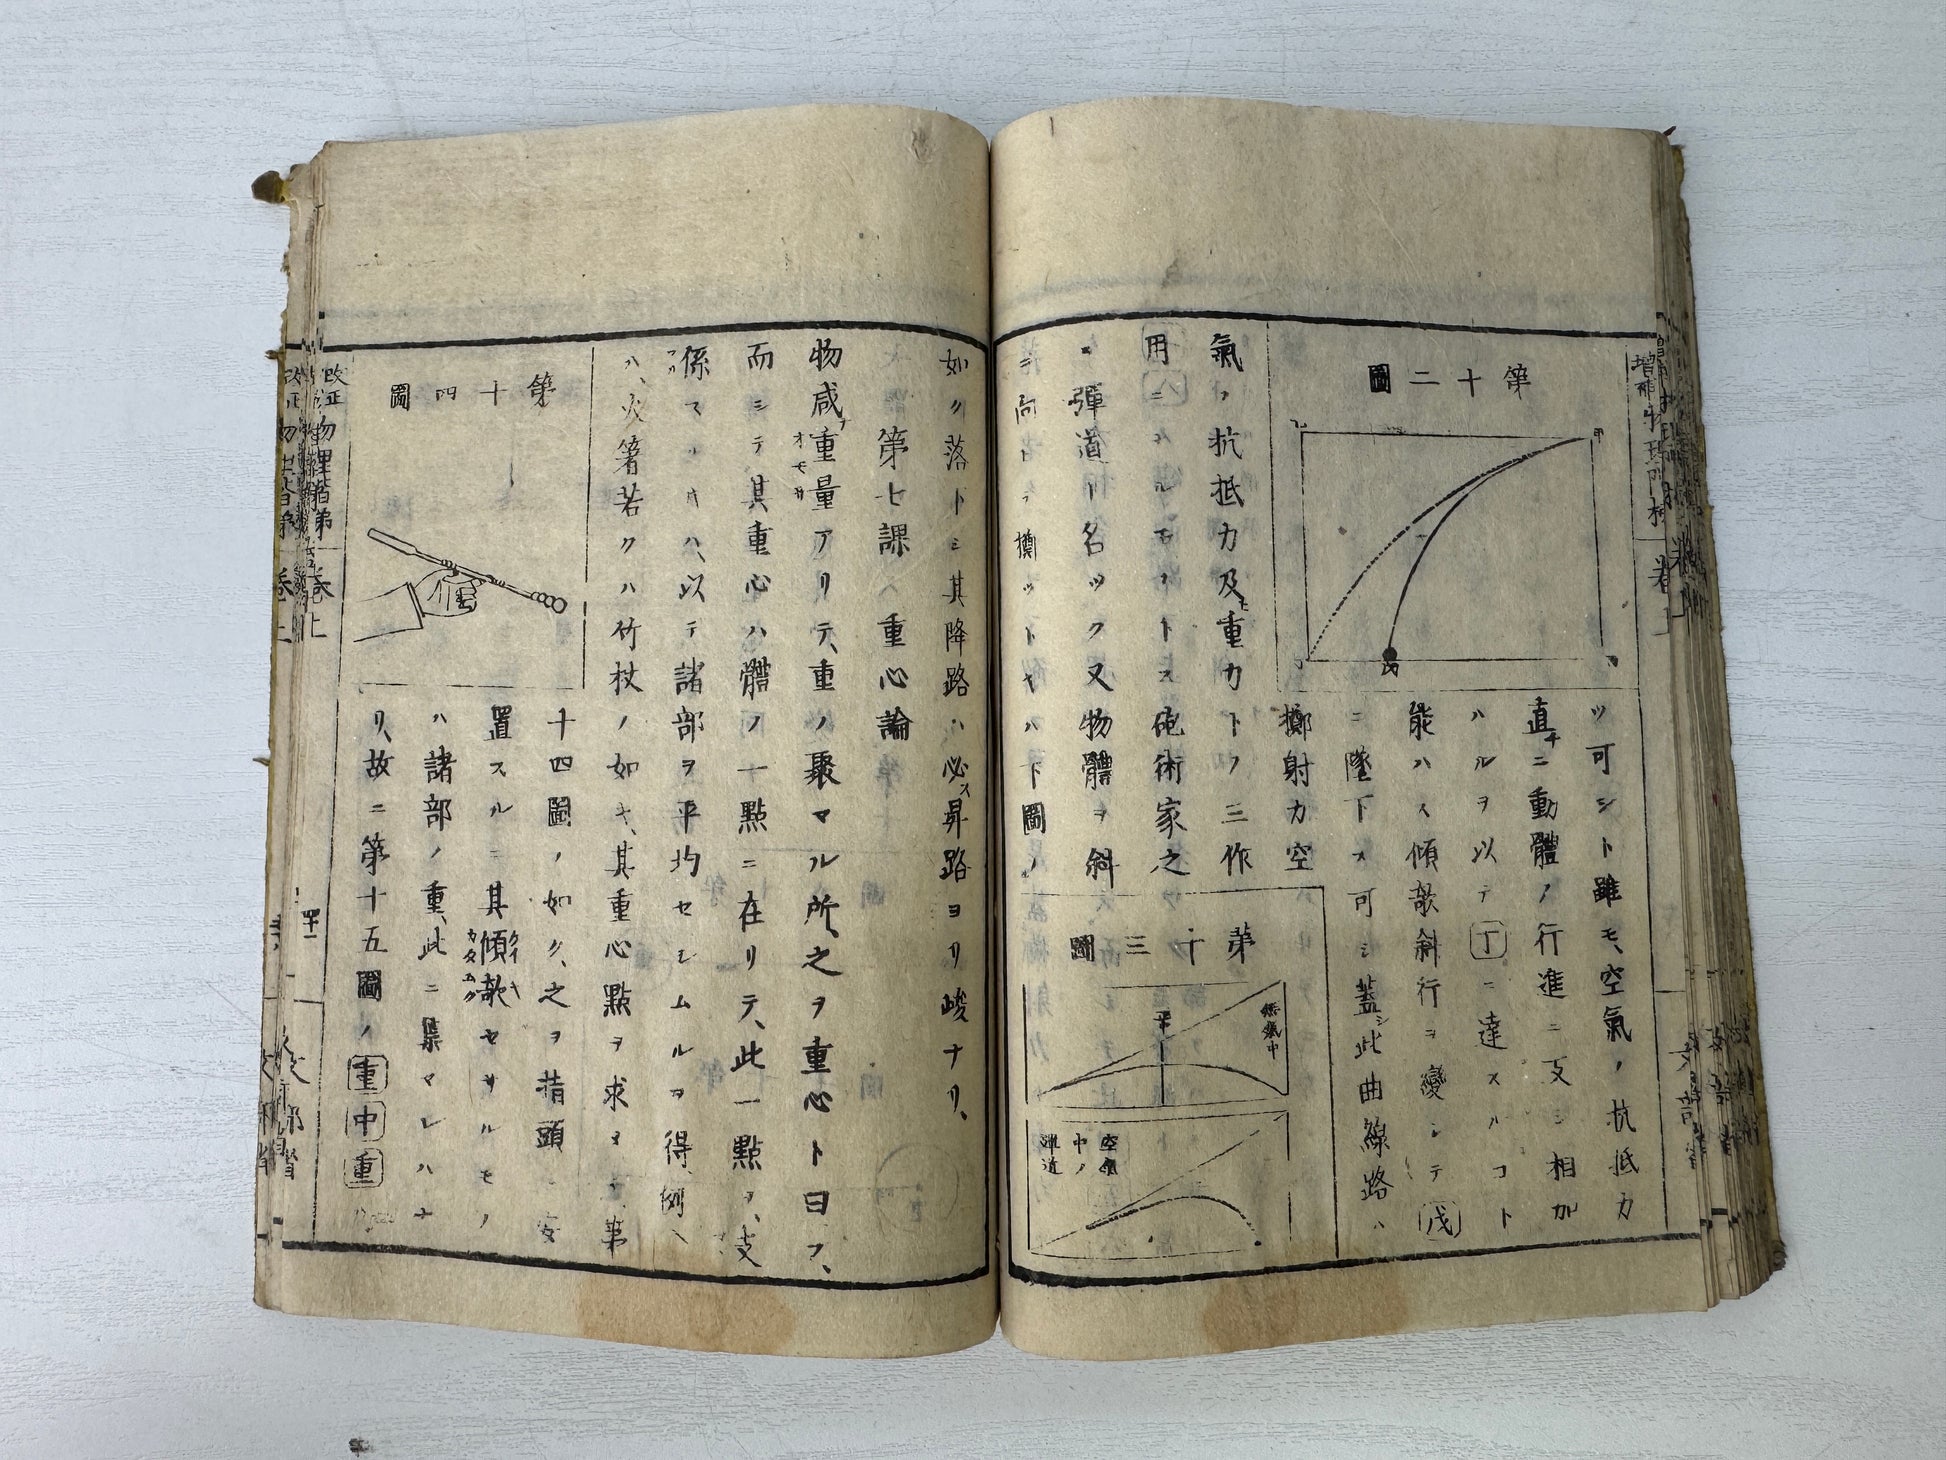 第十二圖
ツ可シト雖モ、空氣ノ抗抵力
直チニ動體ノ行進ニ支シ相加
ハルヲ以テ丁ニ達スルコト
能ハス傾欹斜行ヲ變シテ戊
ニ墜下ス可シ蓋シ此曲線路ハ
擲射力空
氣ノ抗抵力及ヒ重力トノ三作
用ニ
砲術家之
ヲ彈道ト名ツク又物體ヲ斜
ニ向
擲ツトキハ下圖ノ
第十三圖
無氣中
空氣
中ノ
彈道
如ク落下シ其降路ハ必ス昇路ヨリ峻ナリ、
第七課 重心論
物咸ナ重量アリテ、重ノ聚マル所、之ヲ重心ト曰フ、
オモサ
而シテ其重心ハ體ノ一點ニ在リテ、此一點ヲ、支
係スルキハ、以テ諸部ヲ平均セシムルヲ得、例ヘ
ハ、火箸若クハ竹杖ノ如キ、其重心點ヲ求メ第
第十四圖
十四圖ノ如ク、之ヲ指頭ニ安
置スルニ其傾欹セサルモノ
カタムク
ハ諸部ノ重、此ニ集マレハナ
リ、故ニ第十五圖ノ重中重
改正
物理階梯
卷上
文部省
增補
卷上
文部省